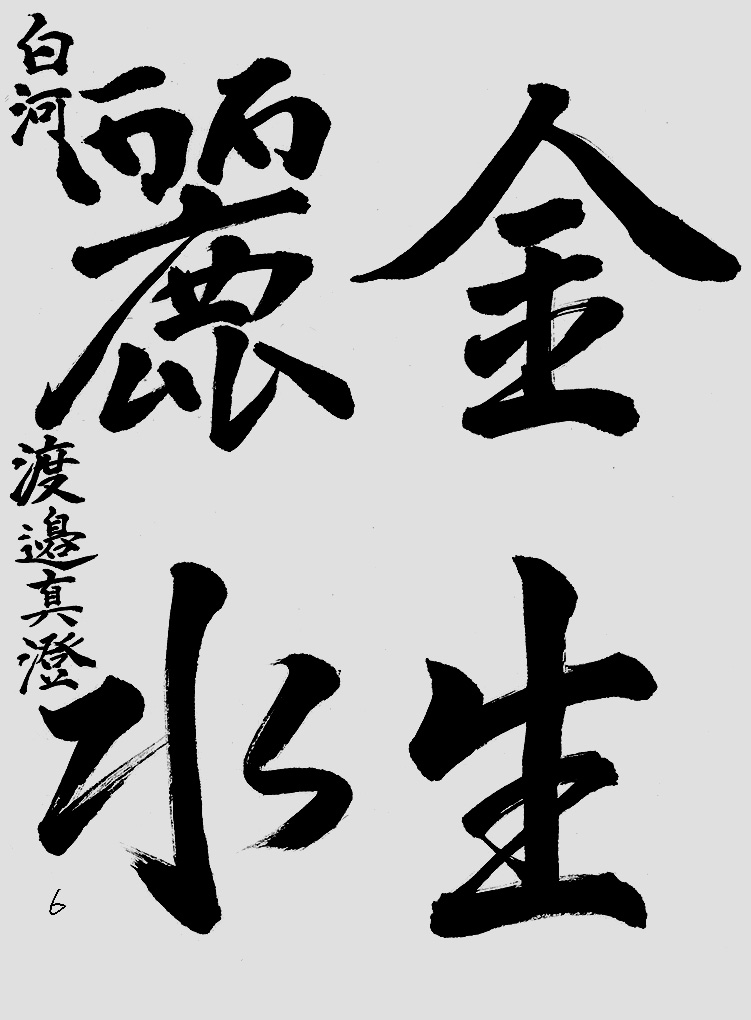 金生
麗水
白河 渡邊真澄
6